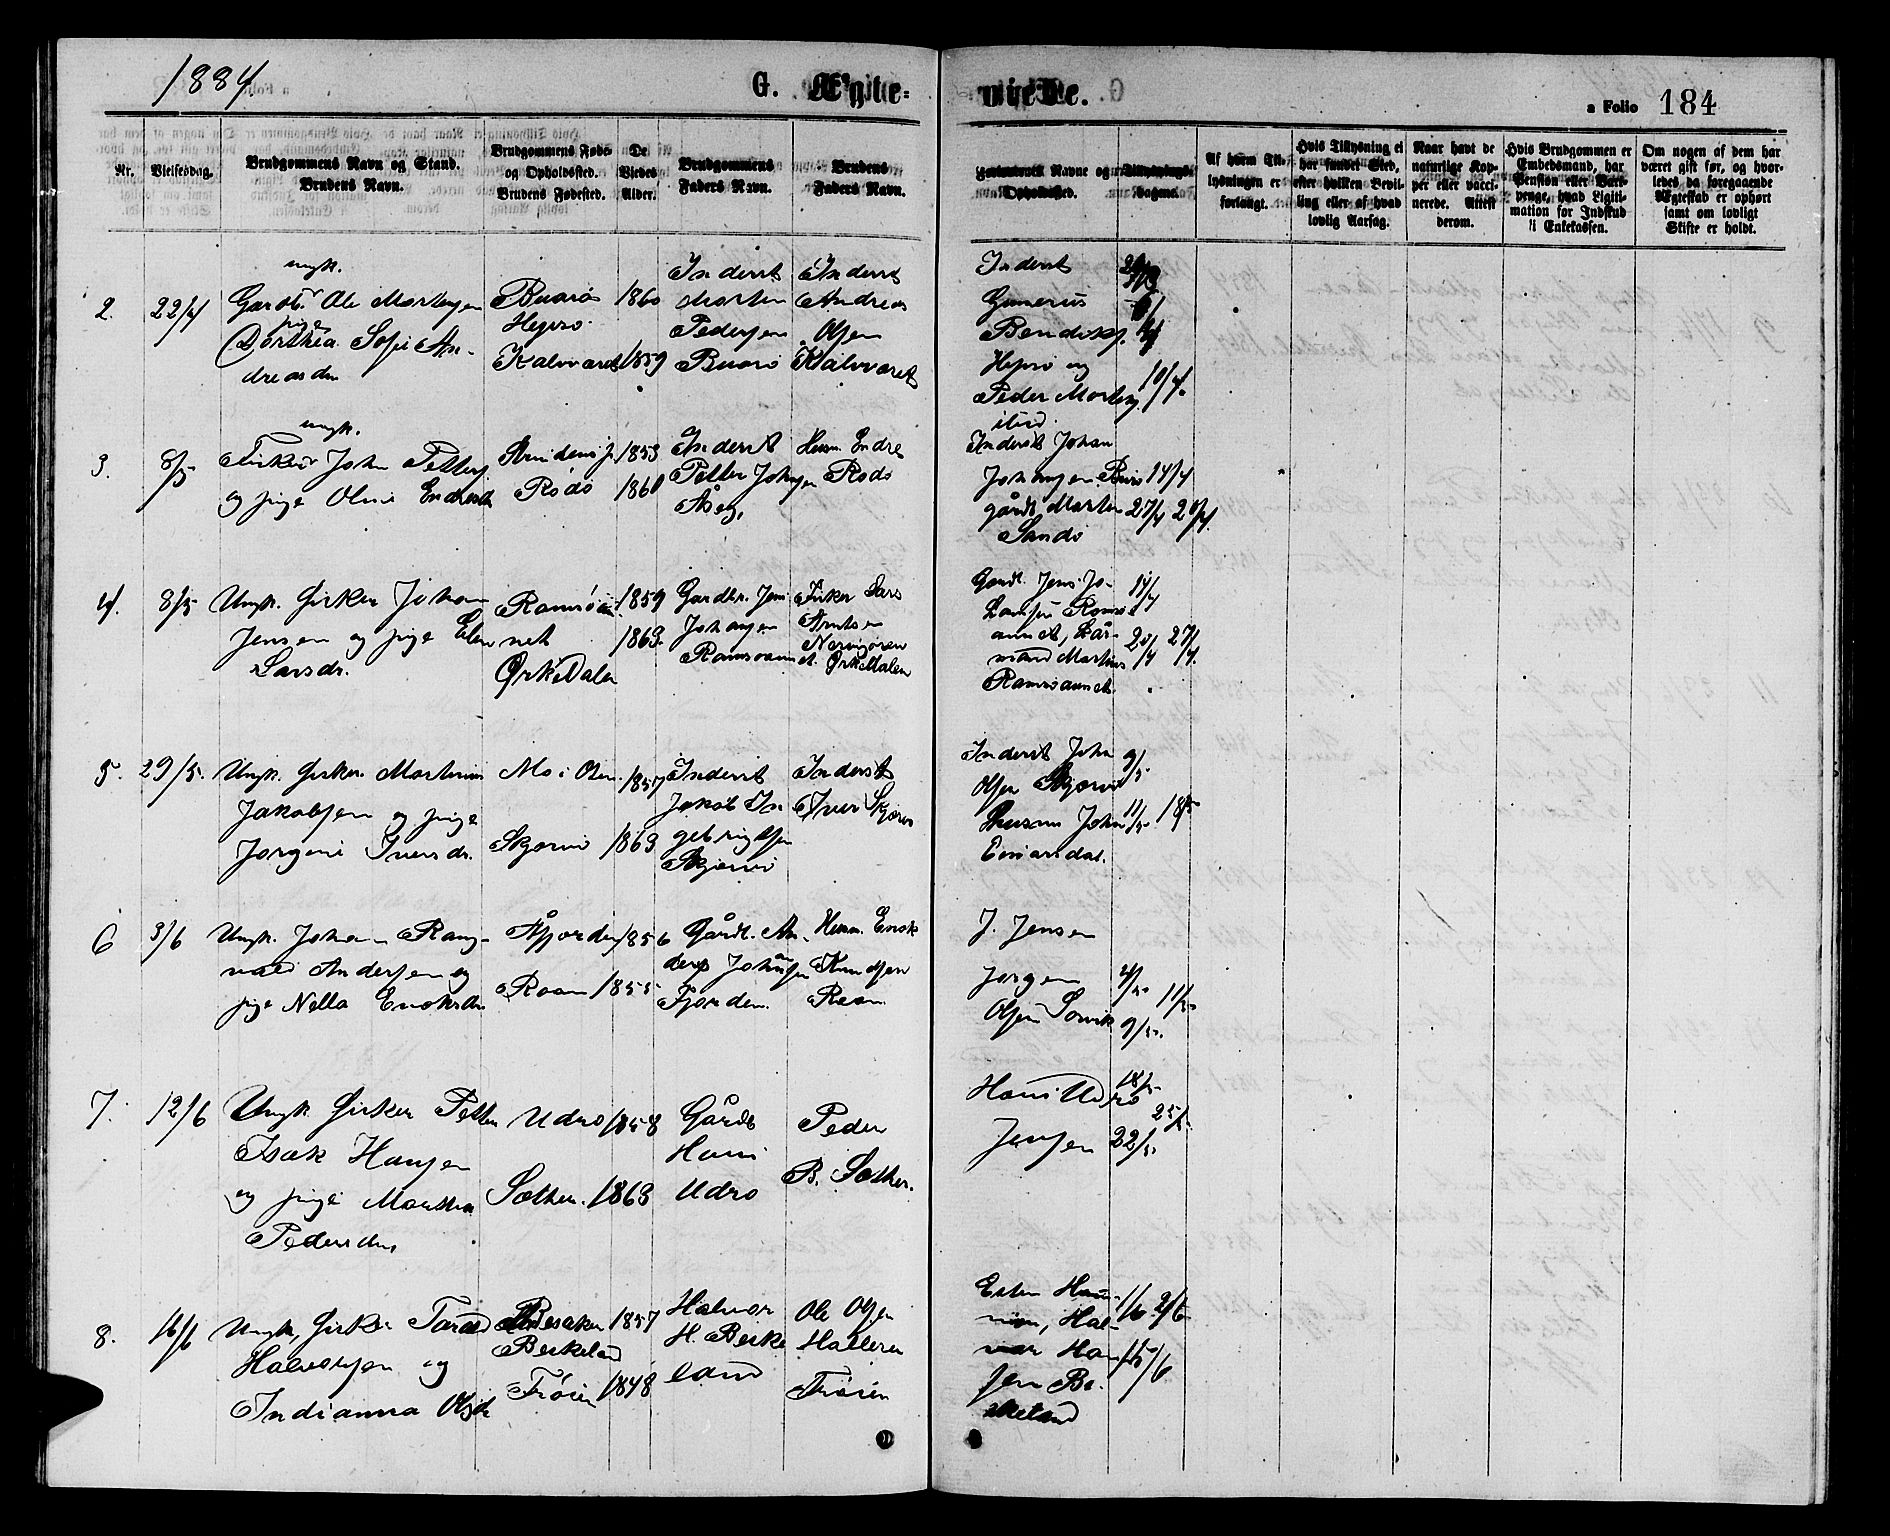 1884
G. Ægte-
viede.
a Folio 184
Nr.
Vielsesdag.
Brudgommens Navn og Stand.
Brudens Navn.
Brudgommens Føde-
og Opholdssted.
Brudens Fødested.
De
Viedes
Alder.
Brudgommens
Faders Navn.
Brudens
Faders Navn.
Forlovernes Navne og
Opholdssted.
Tillysnings-
dagene.
Af hvem Til-
lysningen er
forlangt.
Hvis Tillysning ei
har fundet Sted,
efter hvilken Bevil-
ling eller af hvad
lovlig Aarsag.
Naar havt de
naturlige Kop-
per eller vacci-
nerede. Attest
derom.
Hvis Brudgommen er
Embedsmand, har
Pension eller Vart-
penge, hvad Ligiti-
mation for Indskud
i Enkekassen.
Om nogen af dem har
været gift før, og hvor-
ledes da foregaaende
Ægteskab er ophørt
samt om lovligt
Skifte er holdt.
2. 22/4
ungk.
Gardbr Ole Mortensen
pige
Dorthea Sofie An-
dreasdr
Buarø
Hepsø
Kalvvaret
1860
1859
Inderst
Morten
Pedersen
Buarø
Inderst
Andreas
Olsen
Kalvvaret
Inderst
Gunerius
Bendiks.
Hepsø og
Peder Mortens.
ibid.
10/4.
3. 8/5
ungk.
Fisker John Petters.
og pige Oline Endresdr
Rødø
1853
1861
Inderst
Petter Johnsen
Inderst Johan
Johansen
Morten
Sandø
14/4
27/4 20/4.
4. 8/5
Ungk. Fisker Johan
Jensen og pige Elen
Larsdr.
Ramsøan-
net
Ørkedalen
1859
1863.
Gardbr. Jens
Johansen
Ramsøaunet.
Fisker Lars
Arntsen
Ørkedalen
Gardb. Jens Jo-
hansen Ramsø-
aunet, Går-
mand Martins
Ramsøaunet.
14/4
20/4 27/4.
5. 29/5.
Ungk. Fisker Martinus
Jakobsen og pige
Jørgine Iversdr.
Mo i Osen
Skjærvø
1857
1863
Inderst
Jakob In-
gebrigtsen
Skjærvø
Inderst
Iver Skjærvø
Inderst John
Olsen Skjærvø
Husm John
9/5
11/5 18/5
6 3/6
Ungk. Johan Rang-
vald Andersen og
pige Nella Enoksdr
Åfjorden
Roan
1856
1855
Gårdb. An-
ders Johansen
Fjorden.
Husm. Enok
Knudsen
Roan
J. Jensen
Jørgen
Olsen Sørvik
4/5
11/5
9/5.
7. 12/6
Ungk Fisker Petter
Isak Hansen
og pige Martha
Pedersdr,
Udrø
Sæther.
1858
1863
Gårdb
Hans
Udrø
Peder
B. Sæther.
Hans Udrø
Jensen
18/5
25/5
22/5.
8. 16/6
Ungk, Fisker Tarald
Halvorsen og
Indianna Olsdr
Besaker
Berkeland
Trøien
1857
1848
Halvor
H. Berke
land
Ole Olsen
Halleren
Trøien
Esten Han-
sen, Hal-
vor Han-
sen Be-
rkeland
1/6 2/6
15/6